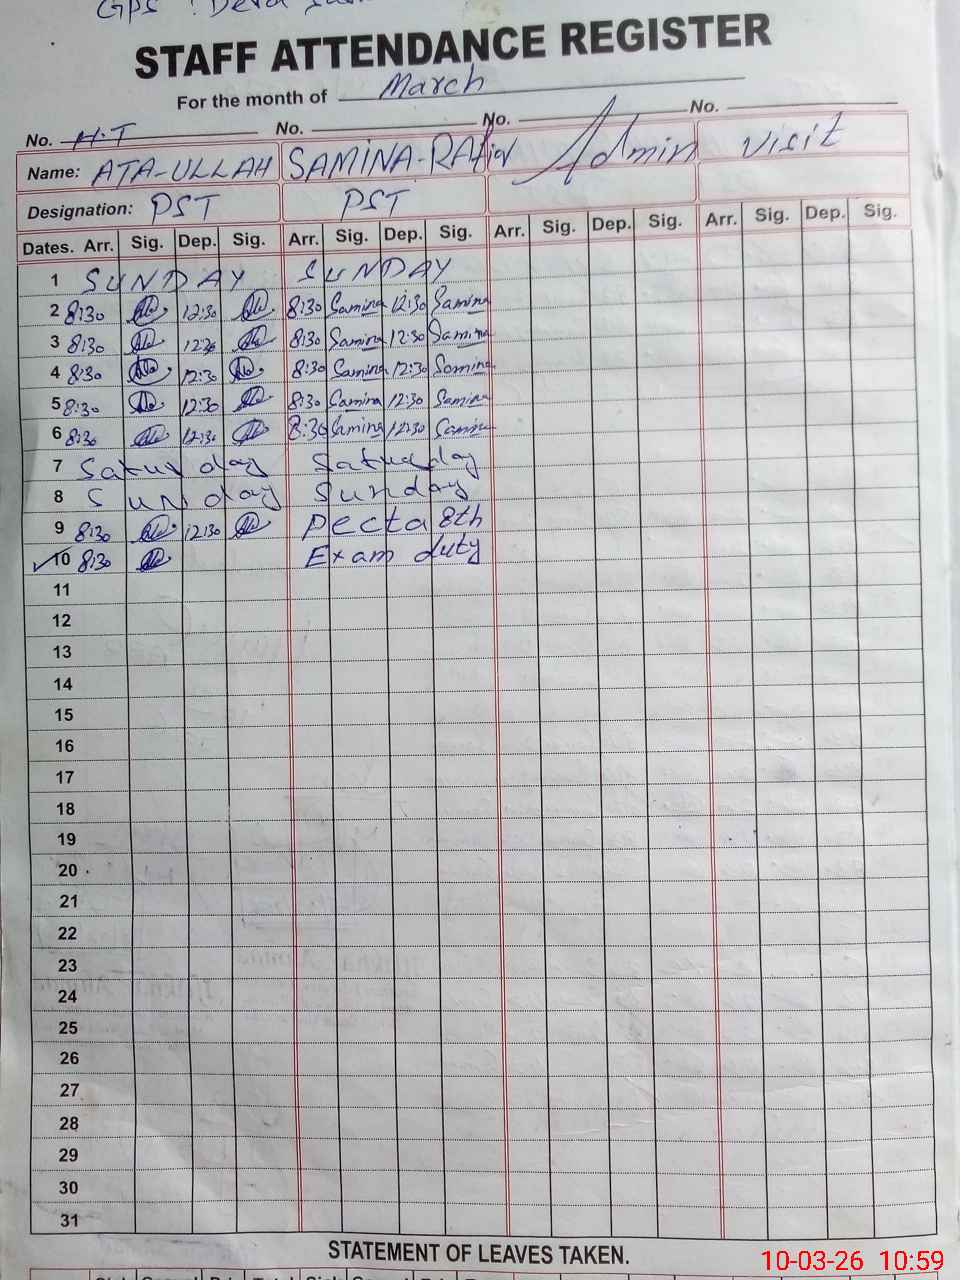 GPS : Deva
STAFF ATTENDANCE REGISTER
For the month of March
No. H.T No. No. No.
Name: ATA-ULLAH SAMINA-RAfiq Admin visit
Designation: PST PST
Dates. Arr. Sig. Dep. Sig. Arr. Sig. Dep. Sig. Arr. Sig. Dep. Sig. Arr. Sig. Dep. Sig.
1 SUNDAY SUNDAY
2 8:30 12:30 8:30 Samina 12:30 Samina
3 8:30 12:30 8:30 Samina 12:30 Samina
4 8:30 12:30 8:30 Samina 12:30 Samina
5 8:30 12:30 8:30 Samina 12:30 Samina
6 8:30 12:30 8:30 Samina 12:30 Samina
7 Saturday Saturday
8 Sunday Sunday
9 8:30 12:30 Pecta 8th
10 8:30 Exam duty
11
12
13
14
15
16
17
18
19
20
21
22
23
24
25
26
27
28
29
30
31
STATEMENT OF LEAVES TAKEN.
10-03-26 10:59